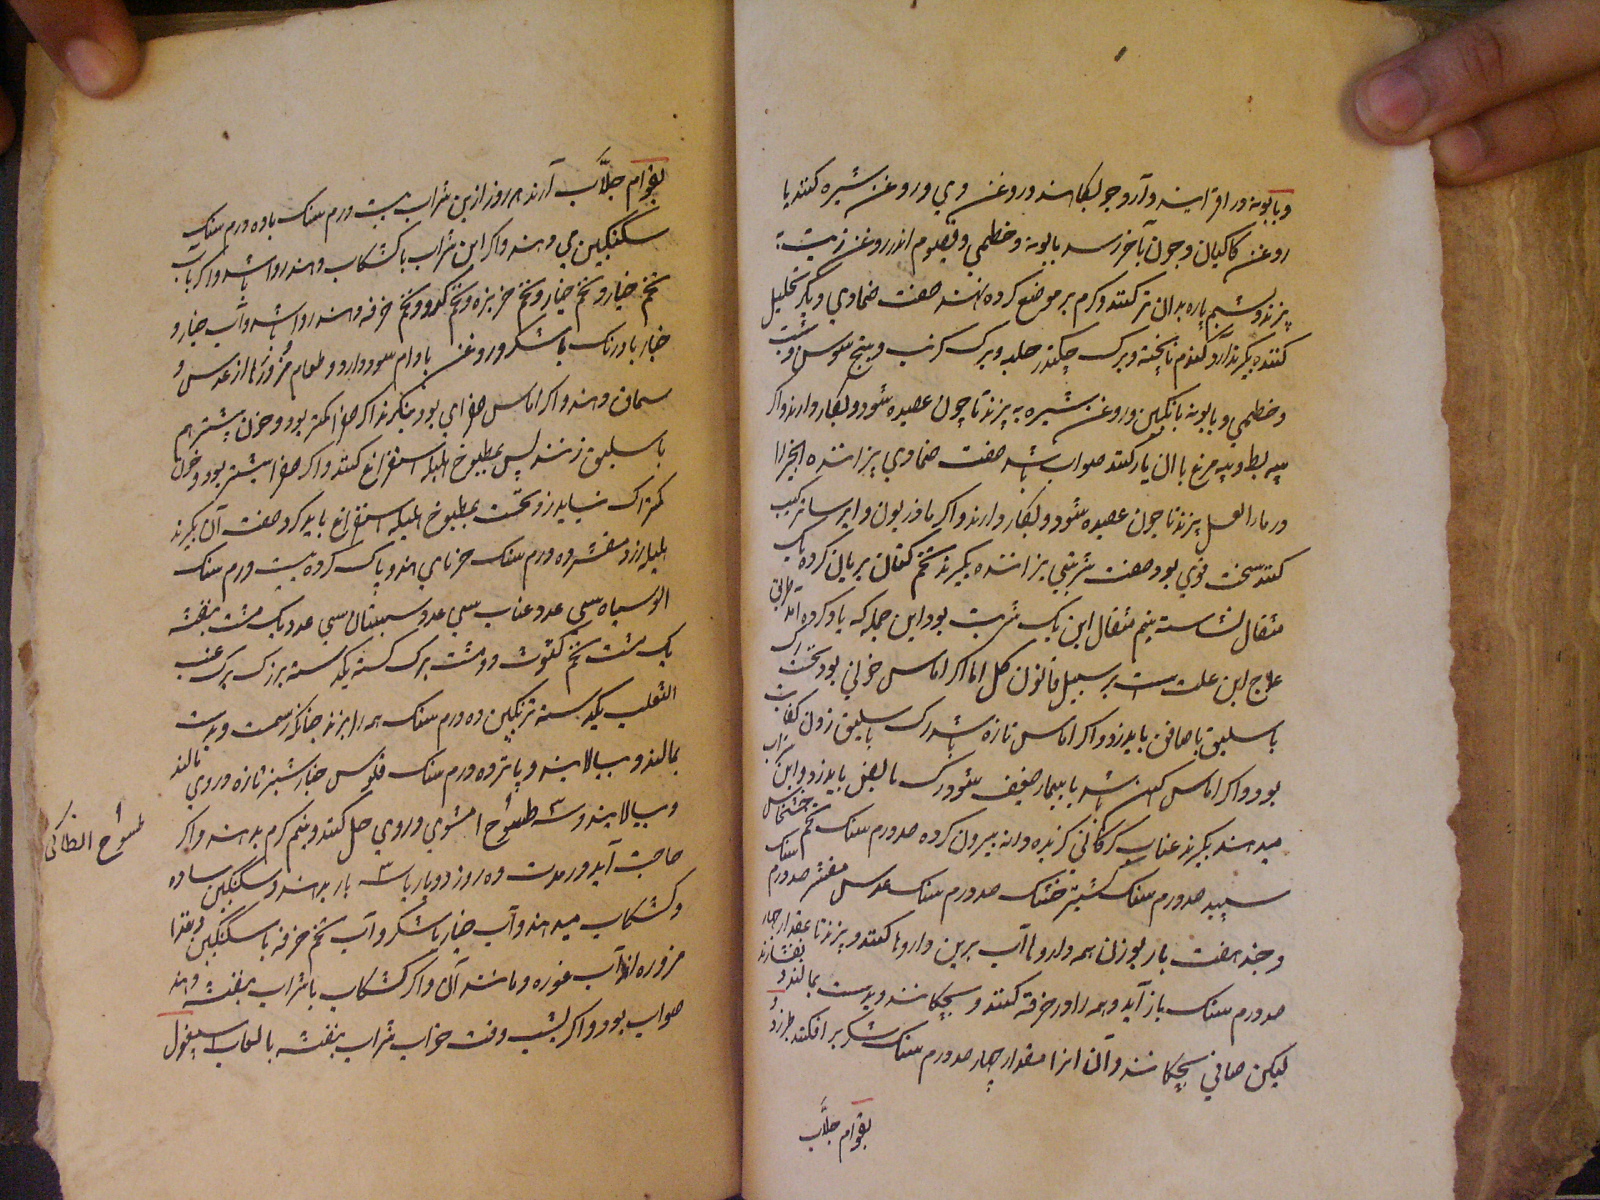 و بابونه در او افزایند و آرد جو بکار هند و روغن وی و روغن شیره کنند یا
روغن کاکیان و چون بآخر رسد بابونه و خطمی و قیصوم اندر روغن زیت
پزند و پشم پاره بدان تر کنند و کرم بر موضع کرده نهند صفت ضمادی دیکر تحلیل
کننده بکیرند آرد کندم نابخته و برک چکندر حلبه و برک کرنب و بیخ سوسن و شبت
و خطمی و بابونه بانکبین و روغن شیره به پزند تا چون عصیده شود و بکار دارند و اکر
پیه بط و پیه مرغ با آن یار کنند صواب باشد صفت ضمادی پزاننده انجیر را
در ماء العسل پزند تا چون عصیده شود و بکار دارند و اکر مازریون و ایرسا ترکیب
کنند سخت قوی بود صفت شربتی پزاننده بکیرند تخم کتان بریان کرده یک
مثقال نشاسته نیم مثقال این یک شربت بود این جمله که یاد کرده آمد طریق
علاج این علت است بر سبیل قانون کل اما اکر اماس خونی بود نخست رک
باسلیق یا صافن باید زد و اکر اماس تازه باشد رک باسلیق زدن کفایت
بود و اکر اماس کهن شده باشد یا بیمار ضعیف شود رک مابض باید زد و این شراب
میدهند بکیرند عناب کرکانی کزیده دانه بیرون کرده صد درم سنک تخم خشخاش
سپید صد درم سنک کشنیز خشک صد درم سنک عدس مقشر صد درم سنک
و چند هفت بار بوزن همه داروها آب برین داروها کنند و بپزند تا بمقدار چهار
صد درم سنک باز آید و همه را در خرقه کنند و بچکانند و بدست بمالند و نفشارند
لیکن صافی بچکانند و آن را مقدار چهار صد درم سنک شکر برافکنند طبرزد و
بقوام جلّاب
بقوام جلّاب آرند هر روز ازین شراب بیست درم سنک با ده درم سنک
سکنکبین می دهند و اکر این شراب با کشکاب دهند روا باشد و اکر با آب
تخم خیار و تخم خیار و تخم خربزه و تخم کدو و تخم خرفه دهند روا باشد و آب خیار و
خیار بادرنک با شکر و روغن بادام سود دارد و طعام مزوّرها از عدس و
سماق دهند و اکر اماس صفرایی بود بنکرند اکر صفرا کمتر بود و خون بیشتر هم
باسلیق زنند پس بمطبوخ هلیله استفراغ کنند و اکر صفرا بیشتر بود و خون
کمتر رک نباید زد و نخست بمطبوخ هلیله استفراغ باید کرد صفت آن بکیرند
هلیله زرد مقشر ده درم سنک خرمای هندو پاک کرده بیست درم سنک
الو سیاه سی عدد عناب سی عدد سپستان سی عدد یک مشت بنفشه
یک مشت تخم کشوث دو مشت برک کسنه یکدسته بزرک برک عنب
الثعلب یکدسته ترنکبین ده درم سنک همه را بپزند چنانکه رسمست و بدست
بمالند و بپالایند و پانزده درم سنک فلوس خیار شنبر تازه در وی بمالند
و بپالایند و سه ۳ طسّوج امشوی در وی حل کنند و نیم کرم بدهند و اکر
حاجت آید در مدت ده روز دو بار یا سه ۳ بار بدهند و سکنکبین ساده
و کشکاب میدهند و آب خیار با شکر و آب تخم خرفه با سکنکبین و غذا
مزوره از آب غوره و مانند آن و اکر کشکاب با شراب بنفشه دهند
صواب بود و اکر بشب وقت خواب شراب بنفشه با لعاب اسپغول
طسّوج انطاکی